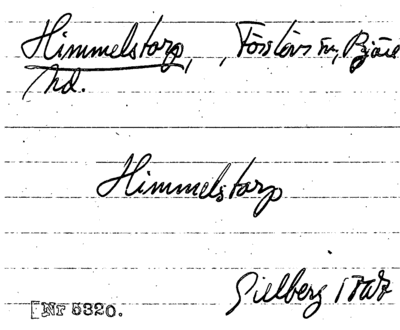 Himmelstorp, , Förslövs sn, Bjäre
hd.
Himmelstorp
Gillberg
[Nr 5320.